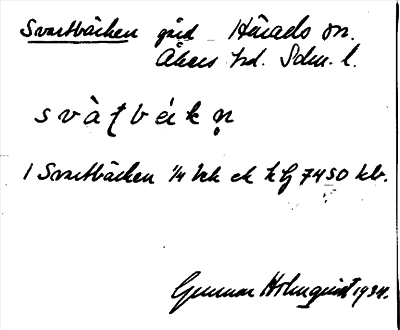 Svartbäcken gård Härads sn.
Åkers hd. Sdm. l.
svàʈbék n̥
1 Svartbäcken 1/4 mtl sk k lj 7450 kbr.
Gunnar Holmquist 1934.